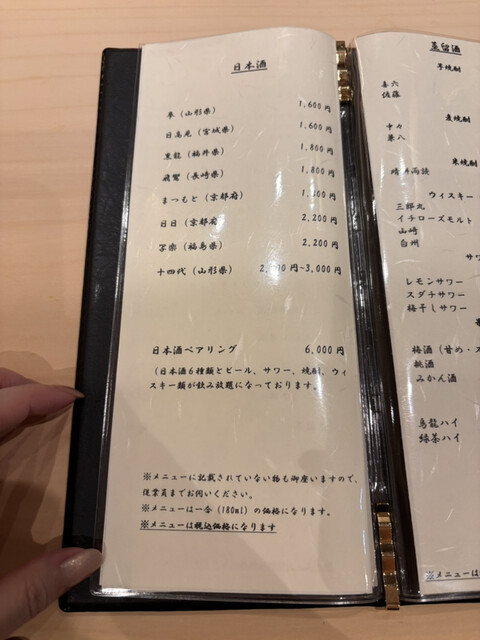 日本酒
(山形県) 1,600円
日高見 (宮城県) 1,600円
黒龍 (福井県) 1,800円
飛鸞 (長崎県) 1,800円
まつもと (京都府)
日日 (京都府) 2,200円
写楽 (福島県) 2,200円
十四代 (山形県) 円~3,000円
日本酒ペアリング 6,000円
(日本酒6種類とビール、サワー、焼酎、ウィ
スキー類が飲み放題になっております。
※メニューに記載されていない物も御座いますので、
従業員までお伺いください。
※メニューは一合(180ml)の価格になります。
※メニューは税込価格になります
蒸留酒
芋焼酎
喜六
佐藤
麦焼酎
中々
兼八
米焼酎
ウィスキー
三郎丸
イチローズモルト
山崎
白州
サワ
レモンサワー
スダチサワー
梅干しサワー
梅酒(甘め・ス
桃酒
みかん酒
烏龍ハイ
緑茶ハイ
※メニューは